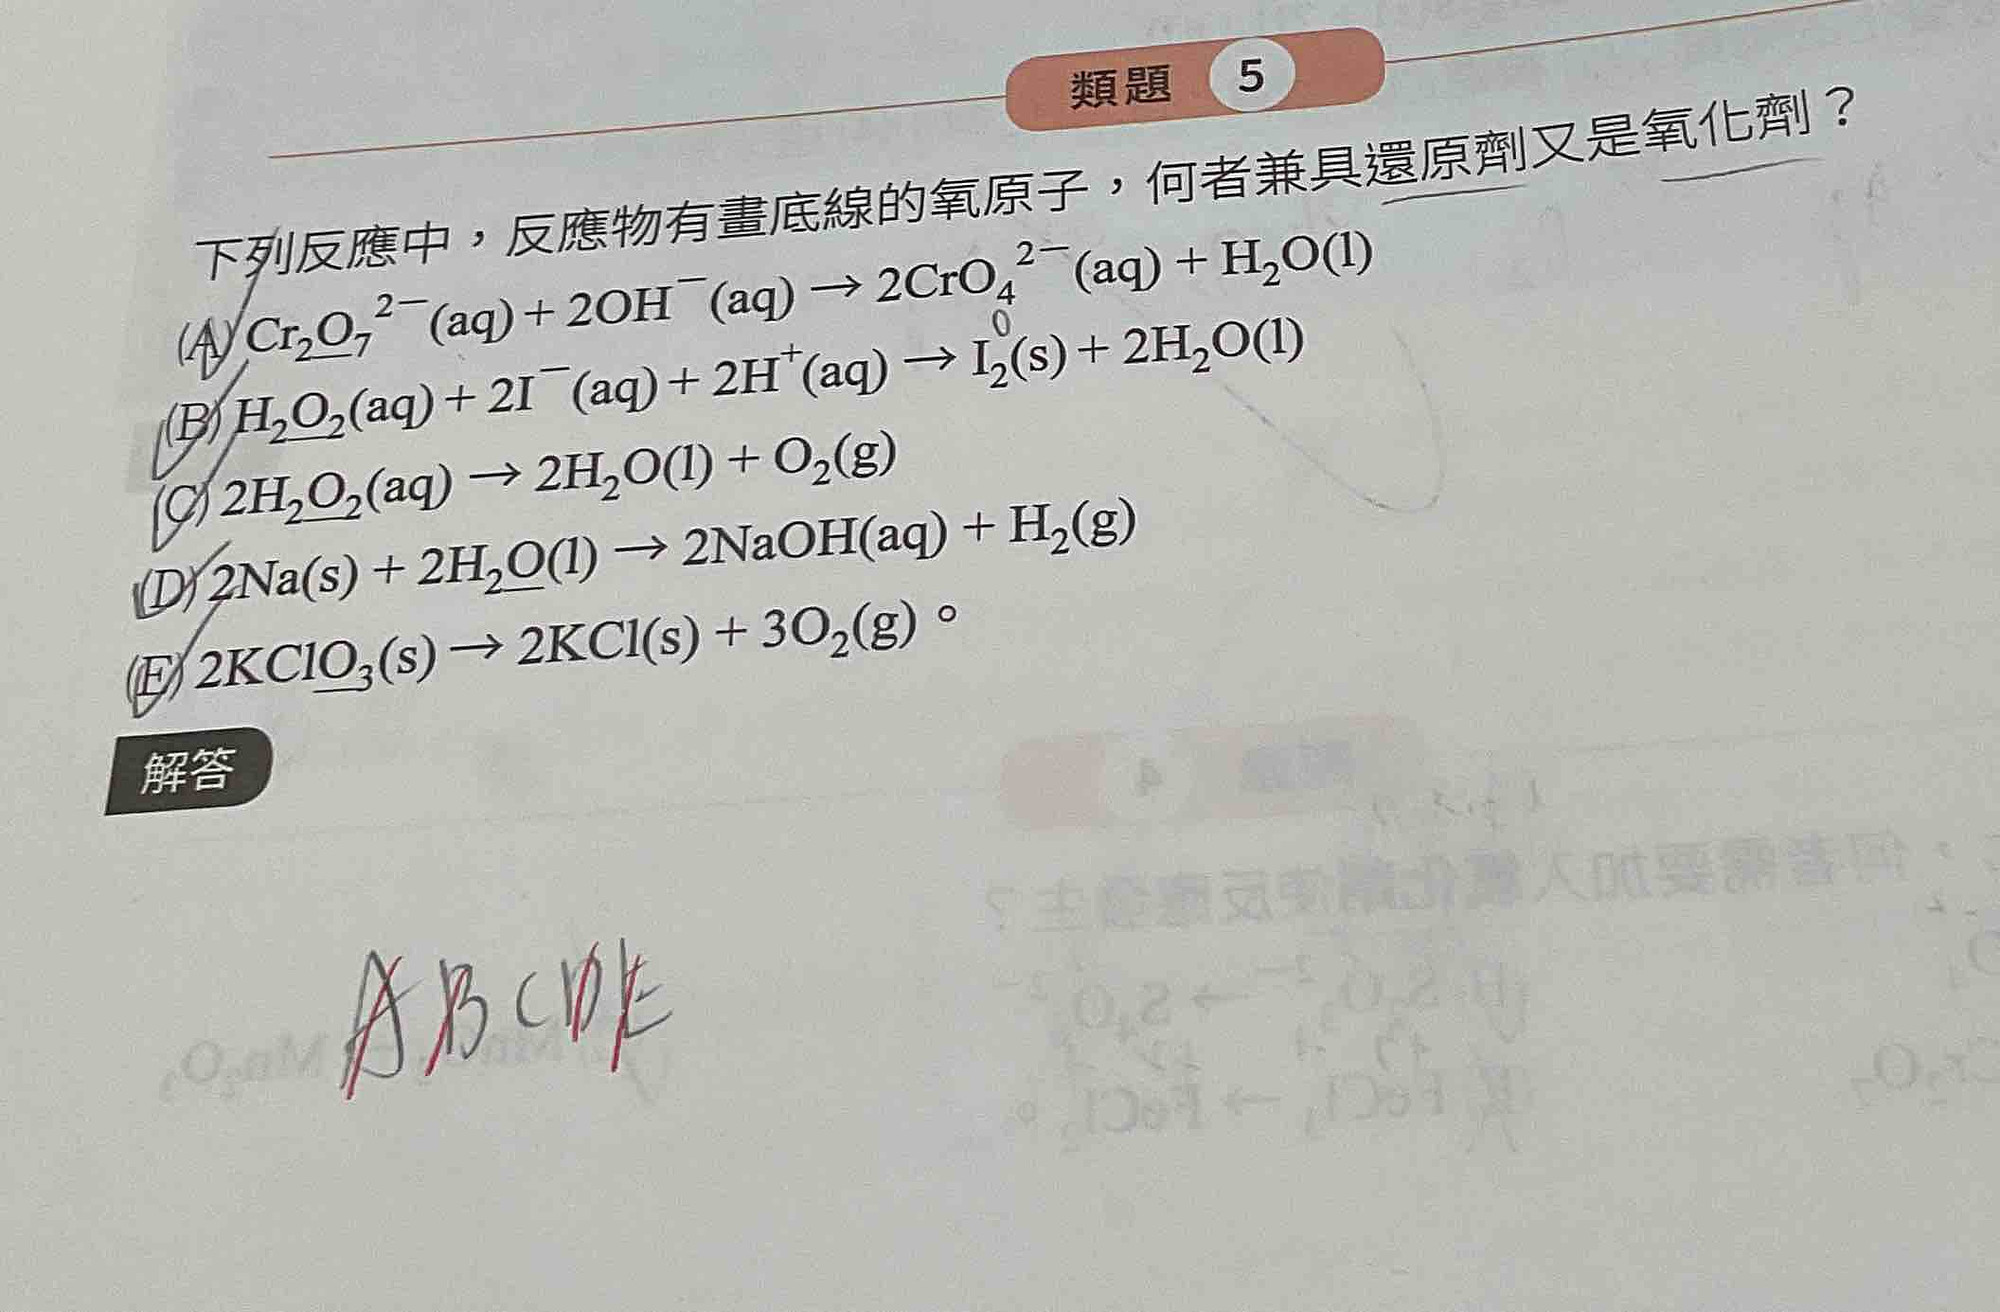 類題 5
下列反應中，反應物有畫底線的氧原子，何者兼具還原劑又是氧化劑？
(A) Cr₂O₇²⁻(aq) + 2OH⁻(aq) → 2CrO₄²⁻(aq) + H₂O(l)
0
(B) H₂O₂(aq) + 2I⁻(aq) + 2H⁺(aq) → I₂(s) + 2H₂O(l)
(C) 2H₂O₂(aq) → 2H₂O(l) + O₂(g)
(D) 2Na(s) + 2H₂O(l) → 2NaOH(aq) + H₂(g)
(E) 2KClO₃(s) → 2KCl(s) + 3O₂(g)。
解答
ABCDE